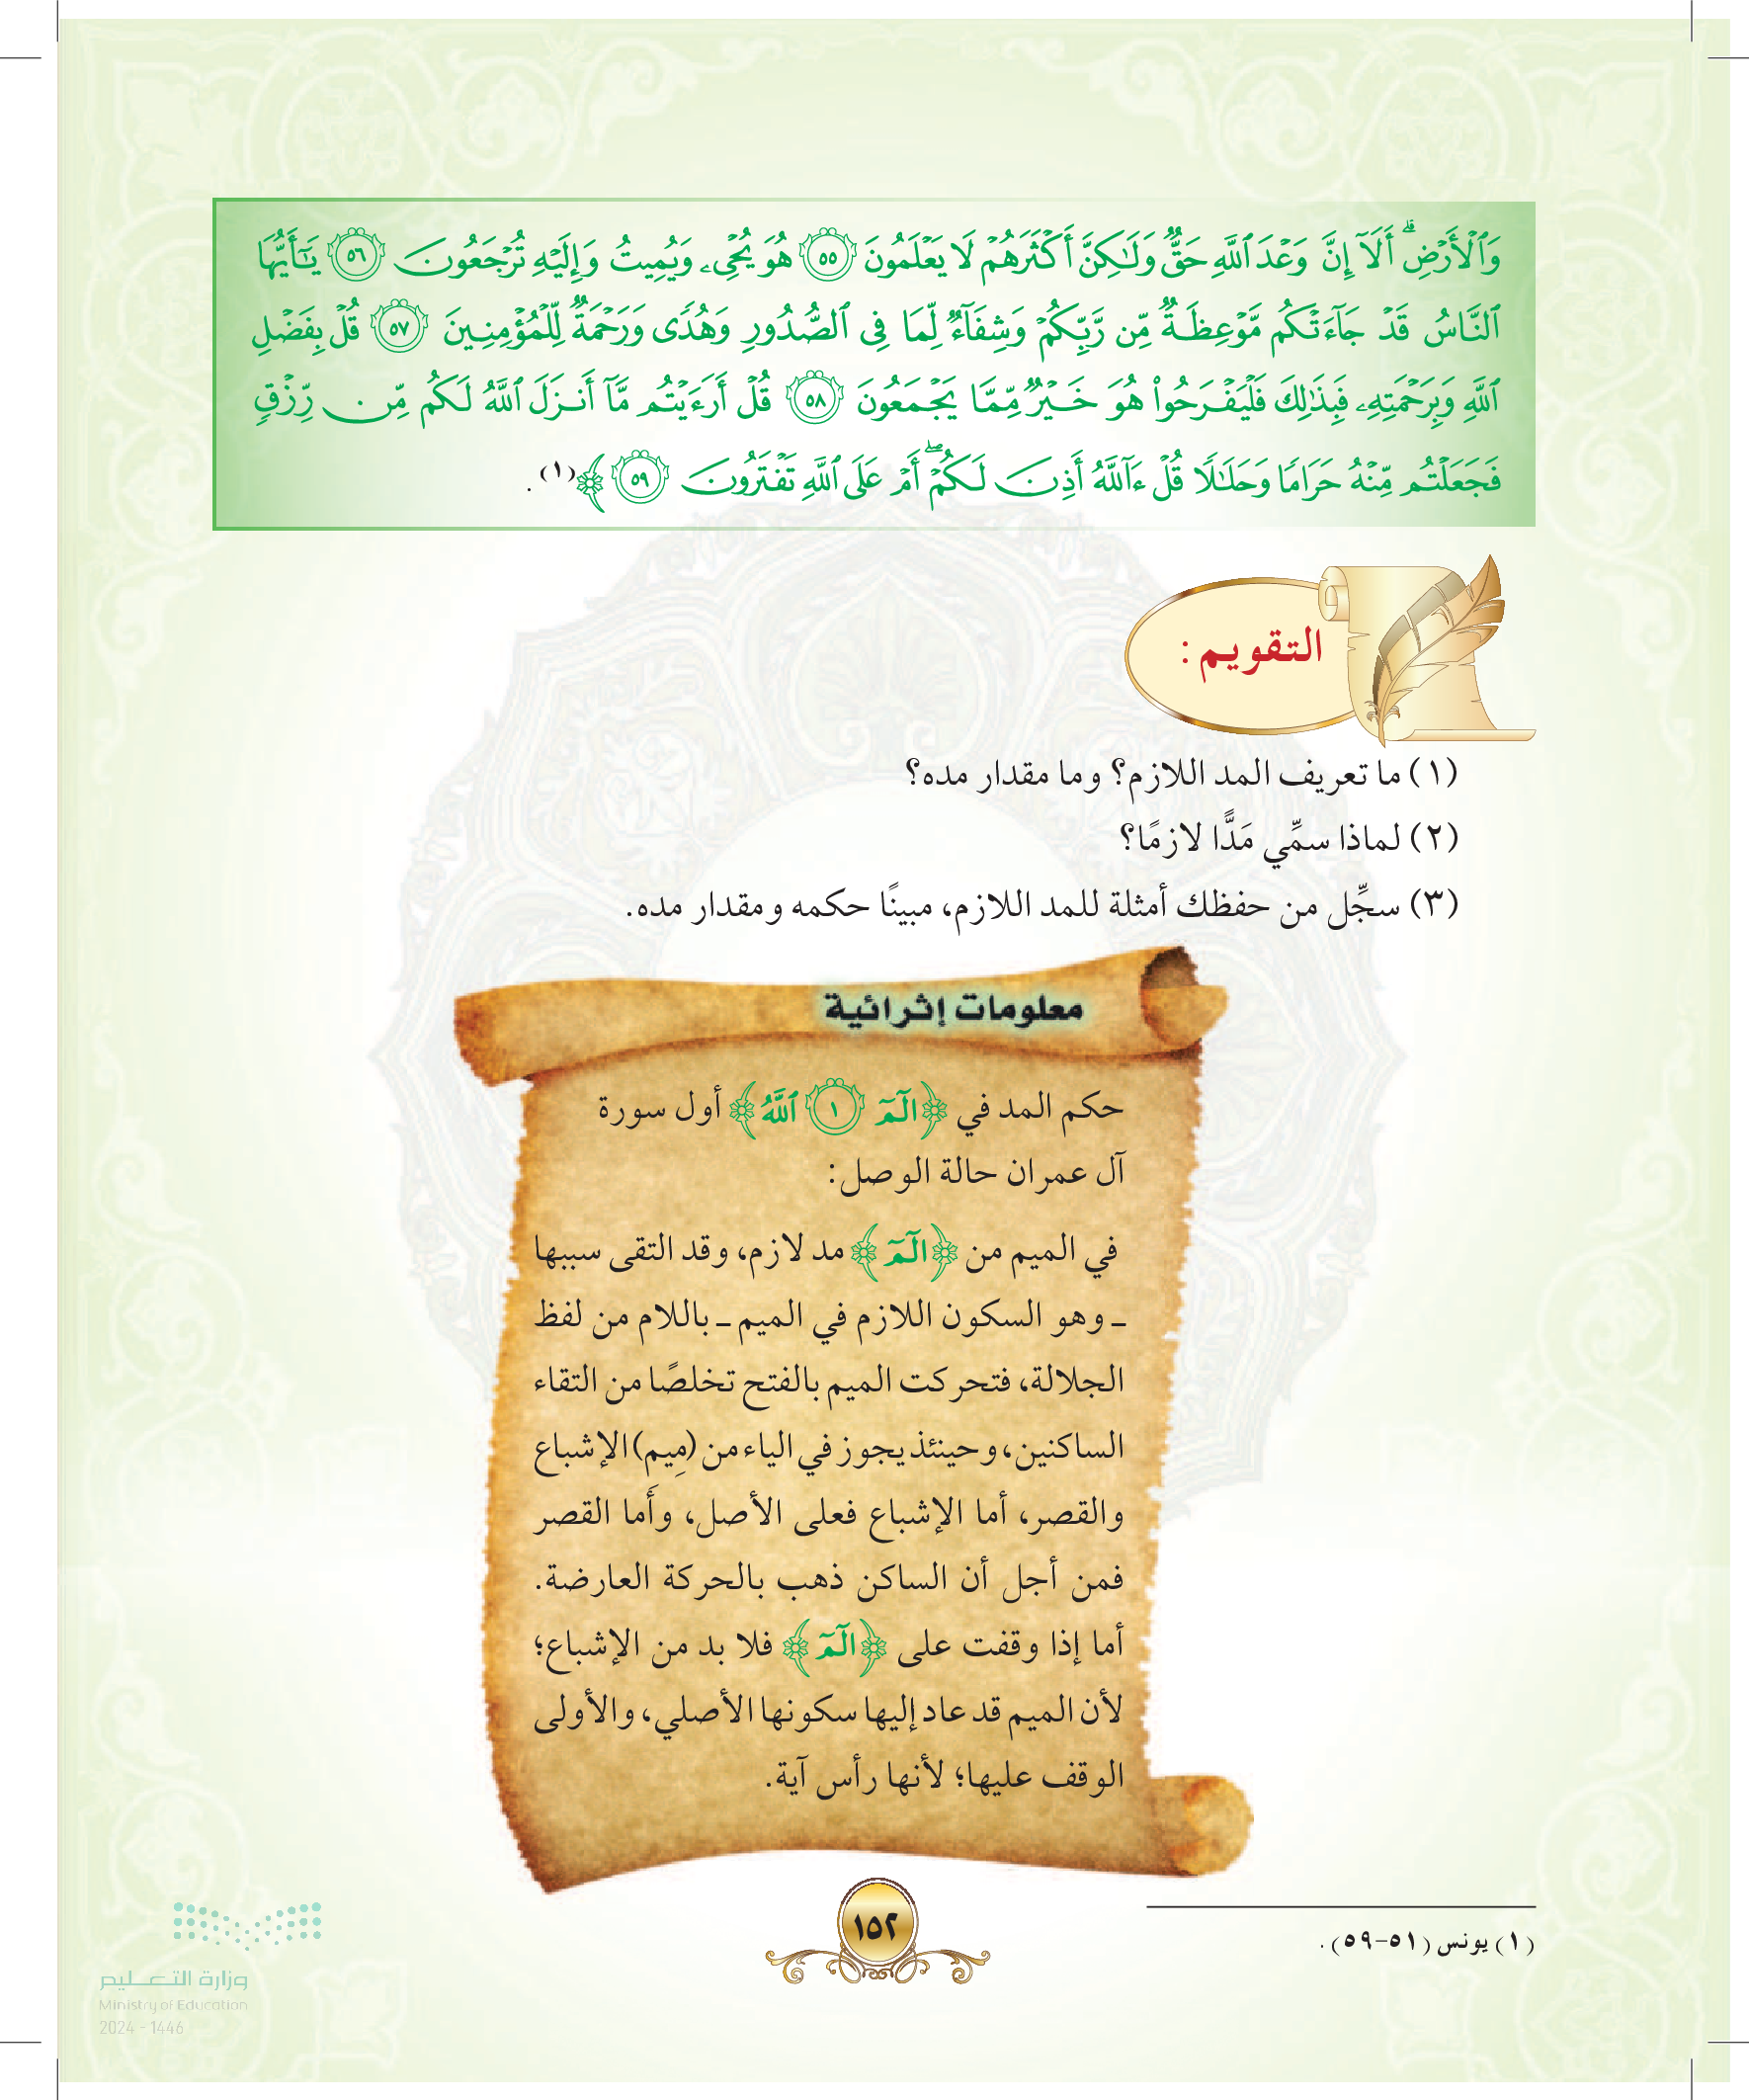 وَٱلْأَرْضِۗ أَلَآ إِنَّ وَعْدَ ٱللَّهِ حَقٌّ وَلَٰكِنَّ أَكْثَرَهُمْ لَا يَعْلَمُونَ ٥٥ هُوَ يُحْيِۦ وَيُمِيتُ وَإِلَيْهِ تُرْجَعُونَ ٥٦ يَٰٓأَيُّهَا
ٱلنَّاسُ قَدْ جَآءَتْكُم مَّوْعِظَةٌ مِّن رَّبِّكُمْ وَشِفَآءٌ لِّمَا فِى ٱلصُّدُورِ وَهُدًى وَرَحْمَةٌ لِّلْمُؤْمِنِينَ ٥٧ قُلْ بِفَضْلِ
ٱللَّهِ وَبِرَحْمَتِهِۦ فَبِذَٰلِكَ فَلْيَفْرَحُوا۟ هُوَ خَيْرٌ مِّمَّا يَجْمَعُونَ ٥٨ قُلْ أَرَءَيْتُم مَّآ أَنزَلَ ٱللَّهُ لَكُم مِّن رِّزْقٍ
فَجَعَلْتُم مِّنْهُ حَرَامًا وَحَلَٰلًا قُلْ ءَآللَّهُ أَذِنَ لَكُمْۖ أَمْ عَلَى ٱللَّهِ تَفْتَرُونَ ٥٩ ﴾(١).
التقويم :
(١) ما تعريف المد اللازم؟ وما مقدار مده؟
(٢) لماذا سمِّي مَدًّا لازمًا؟
(٣) سجِّل من حفظك أمثلة للمد اللازم، مبينًا حكمه ومقدار مده.
معلومات إثرائية
حكم المد في ﴿الٓمٓ ١ ٱللَّهُ﴾ أول سورة
آل عمران حالة الوصل:
في الميم من ﴿الٓمٓ﴾ مد لازم، وقد التقى سببها
ـ وهو السكون اللازم في الميم ـ باللام من لفظ
الجلالة، فتحركت الميم بالفتح تخلصًا من التقاء
الساكنين، وحينئذ يجوز في الياء من (مِيم) الإشباع
والقصر، أما الإشباع فعلى الأصل، وأَما القصر
فمن أجل أن الساكن ذهب بالحركة العارضة.
أما إذا وقفت على ﴿الٓمٓ﴾ فلا بد من الإشباع؛
لأن الميم قد عاد إليها سكونها الأصلي، والأولى
الوقف عليها؛ لأنها رأس آية.
(١) يونس (٥١-٥٩).
١٥٢
وزارة التعليم
Ministry of Education
2024 - 1446